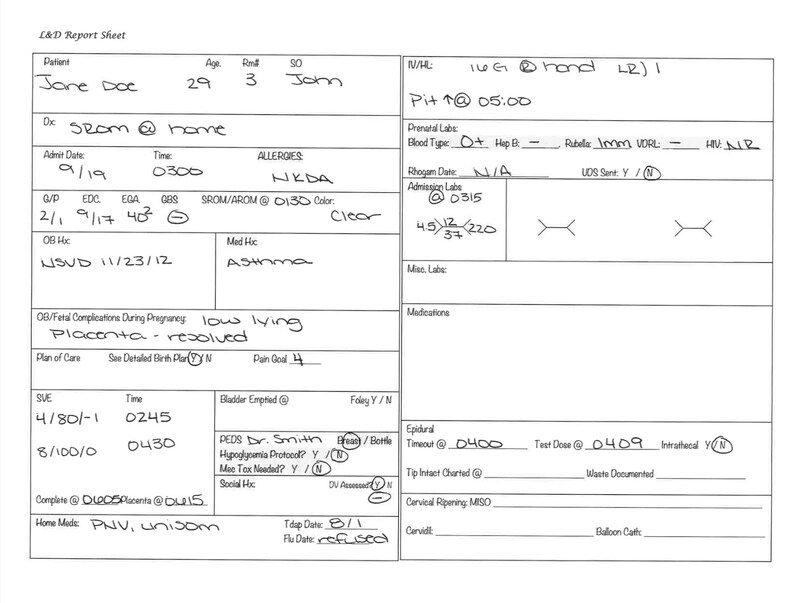 L&D Report Sheet
Patient Age. Rm# SO
Jane Doe 29 3 John
Dx: SROM @ home
Admit Date: Time: ALLERGIES:
9/19 0300 NKDA
G/P EDC. EGA. GBS SROM/AROM @ 0130 Color:
2/1 9/17 40² ⊖ Clear
OB Hx: Med Hx:
NSVD 11/23/12 Asthma
OB/Fetal Complications During Pregnancy: low lying
Placenta - resolved
Plan of Care See Detailed Birth Plan Y/N Pain Goal 4
SVE Time
4/80/-1 0245
8/100/0 0430
Complete @ 0605 Placenta @ 0615
Bladder Emptied @ Foley Y / N
PEDS Dr. Smith Breast / Bottle
Hypoglycemia Protocol? Y / N
Mec Tox Needed? Y / N
Social Hx: DV Assessed? Y / N
⊖
Home Meds: PNV, unisom Tdap Date: 8/1
Flu Date: refused
IV/HL: 16G ® hand LR) 1
Pit ↑@ 05:00
Prenatal Labs:
Blood Type: O+ Hep B: - Rubella: Imm VDRL: - HIV: NR
Rhogam Date: N/A UDS Sent: Y / N
Admission Labs
@ 0315
4.5 12 220
37
Misc. Labs:
Medications
Epidural
Timeout @ 0400 Test Dose @ 0409 Intrathecal Y / N
Tip Intact Charted @ Waste Documented
Cervical Ripening: MISO
Cervidil: Balloon Cath: